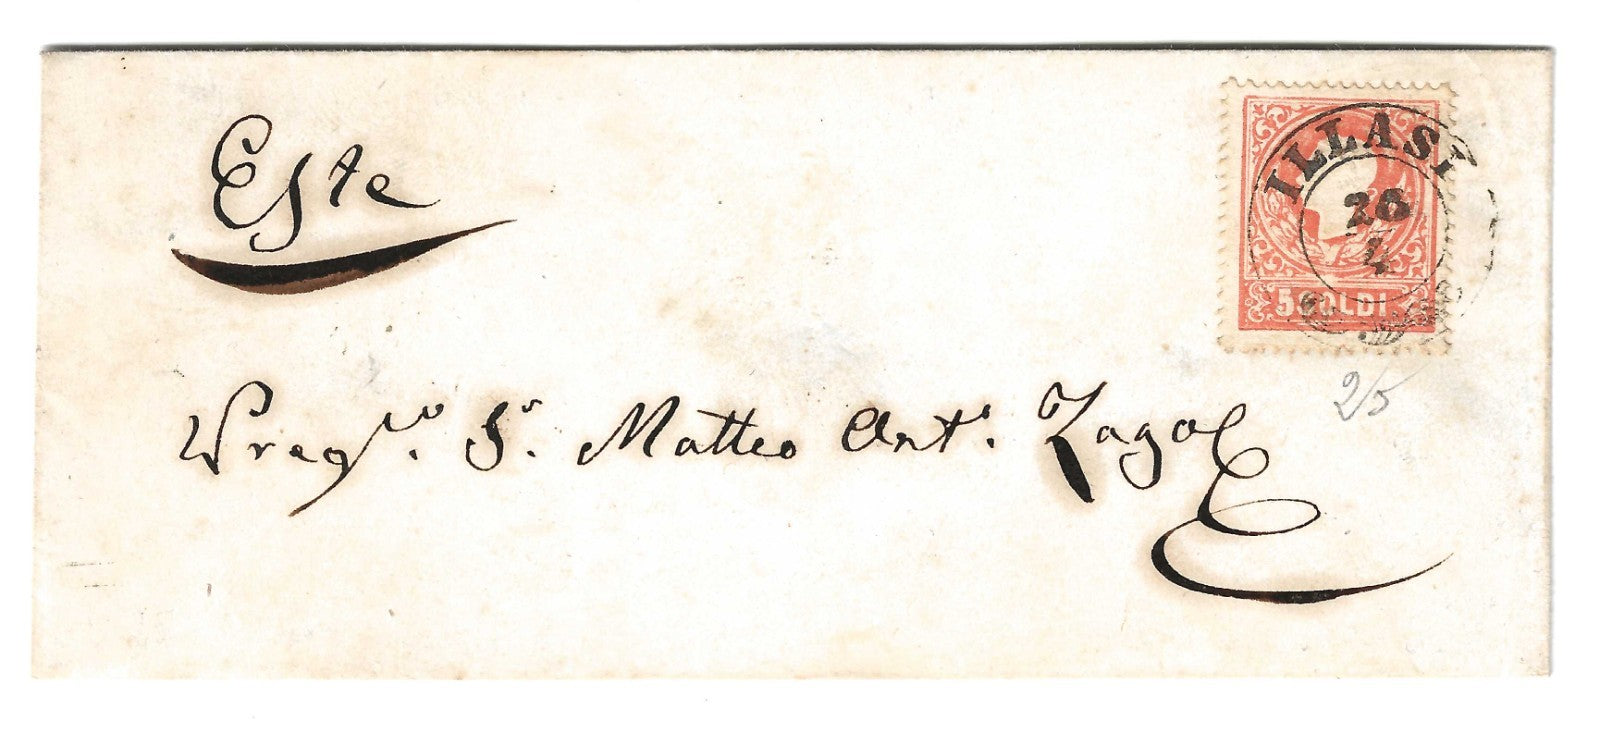 Este
ILLASI
26
4
5 SOLDI
2/5
Preg.mo Sr. Matteo Ant.o Zago